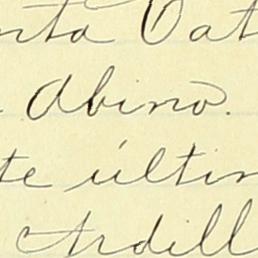 nta Cat
Abino.
te últim
Ardill